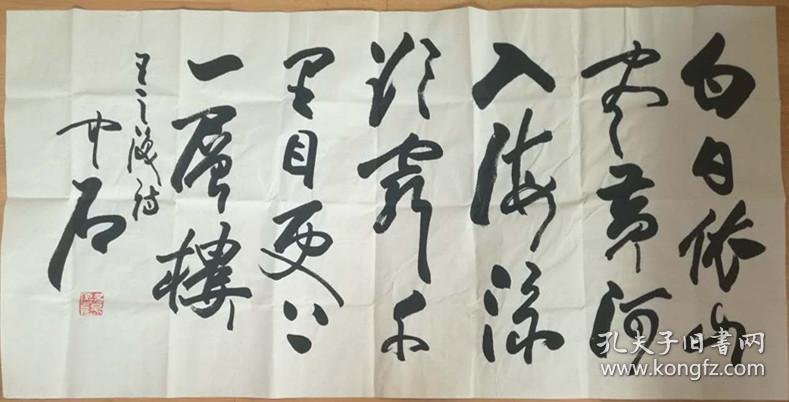 白日依山
尽黄河
入海流
欲穷千
里目更上
一层楼
王之涣诗
中石
孔夫子旧书网
www.kongfz.com